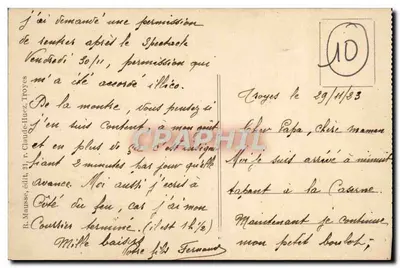 Troyes le 29/11/23
Cher Papa, chère maman
Moi je suis arrivé à minuit
tapant à la Caserne.
Maintenant je continue
mon petit boulot,
j'ai demandé une permission
de rentrer après le Spectacle
Vendredi 30/11, permission qui
m'a été accordé illico.
De la montre, vous pensez si
j'en suis content,
et en plus de
2 minutes par jour qu'elle
avance. Moi aussi j'écris à
Côté du feu, car j'ai mon
Courrier terminé (il est 1h½)
Mille baisers
Votre fils Fernand
10
R. Mousse, édit., 21, r. Claude-Huez, Troyes
CPAPHIL